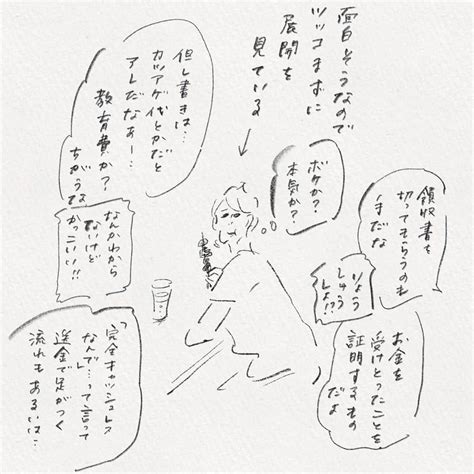 面白そうなので
ツッコまずに
展開を
見ている
領収書を
切ってもらうのも
手だな
りょう
しゅう
しょ!?
お金を
受けとったことを
証明するもの
だよ
ボケか?
本気か?
但し書きは…
カツアゲ代とかだと
アレだなぁー…
教育費か?
ちがうな
なんかわから
ないけど
かっこいい!!
「完全キャッシュレス
なんで…」って言って
送金で足がつく
流れもあるいは…